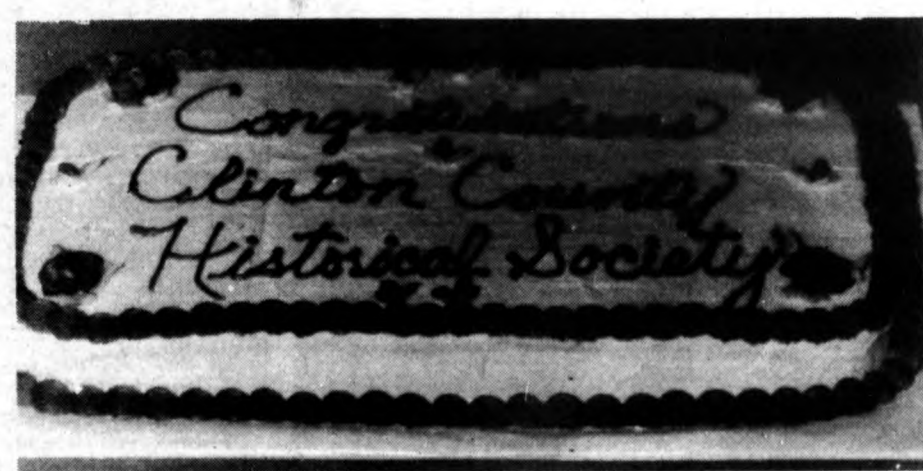 Congratulations
Clinton County
Historical Society